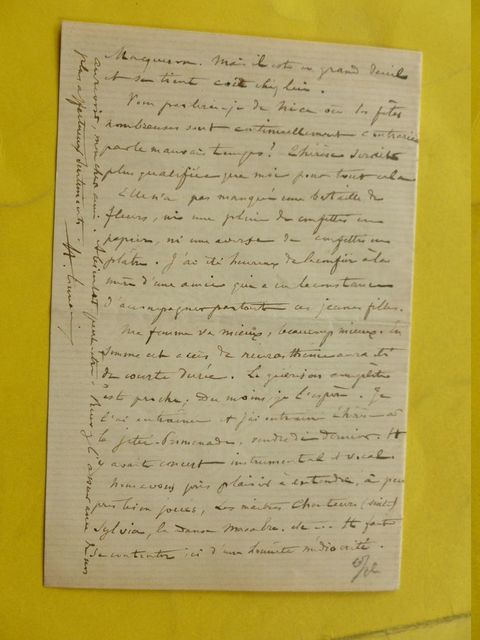 Macqueron. Mais il est en grand deuil
et se tient coit chez lui.
Vous parlerai-je de Nice où les fêtes
nombreuses sont continuellement contrariées
par le mauvais temps? Thérèse serait
plus qualifiée que moi pour tout cela
Elle n'a pas manqué une bataille de
fleurs, ni une pluie de confettis en
papier, ni une averse de confettis en
plâtre. J'ai été heureux de la confier à la
mère d'une amie qui a eu la constance
d'accompagner partout ces jeunes filles.
Ma femme va mieux, beaucoup mieux. En
somme cet accès de neurasthénie aura été
de courte durée. La guérison complète
est proche. Du moins je l'espère. Je
l'ai entraînée et j'ai entraîné Thérèse à
la Jetée-Promenade, vendredi dernier. Il
y avait concert instrumental et vocal
Nous avons pris plaisir à entendre, à peu
près bien joués, Les maîtres Chanteurs (suite)
Sylvia, la Danse Macabre, etc... Il faut
se contenter ici d'une honnête médiocrité.
au revoir, mon cher ami. Recevez l'assurance de nos
plus affectueux sentiments.